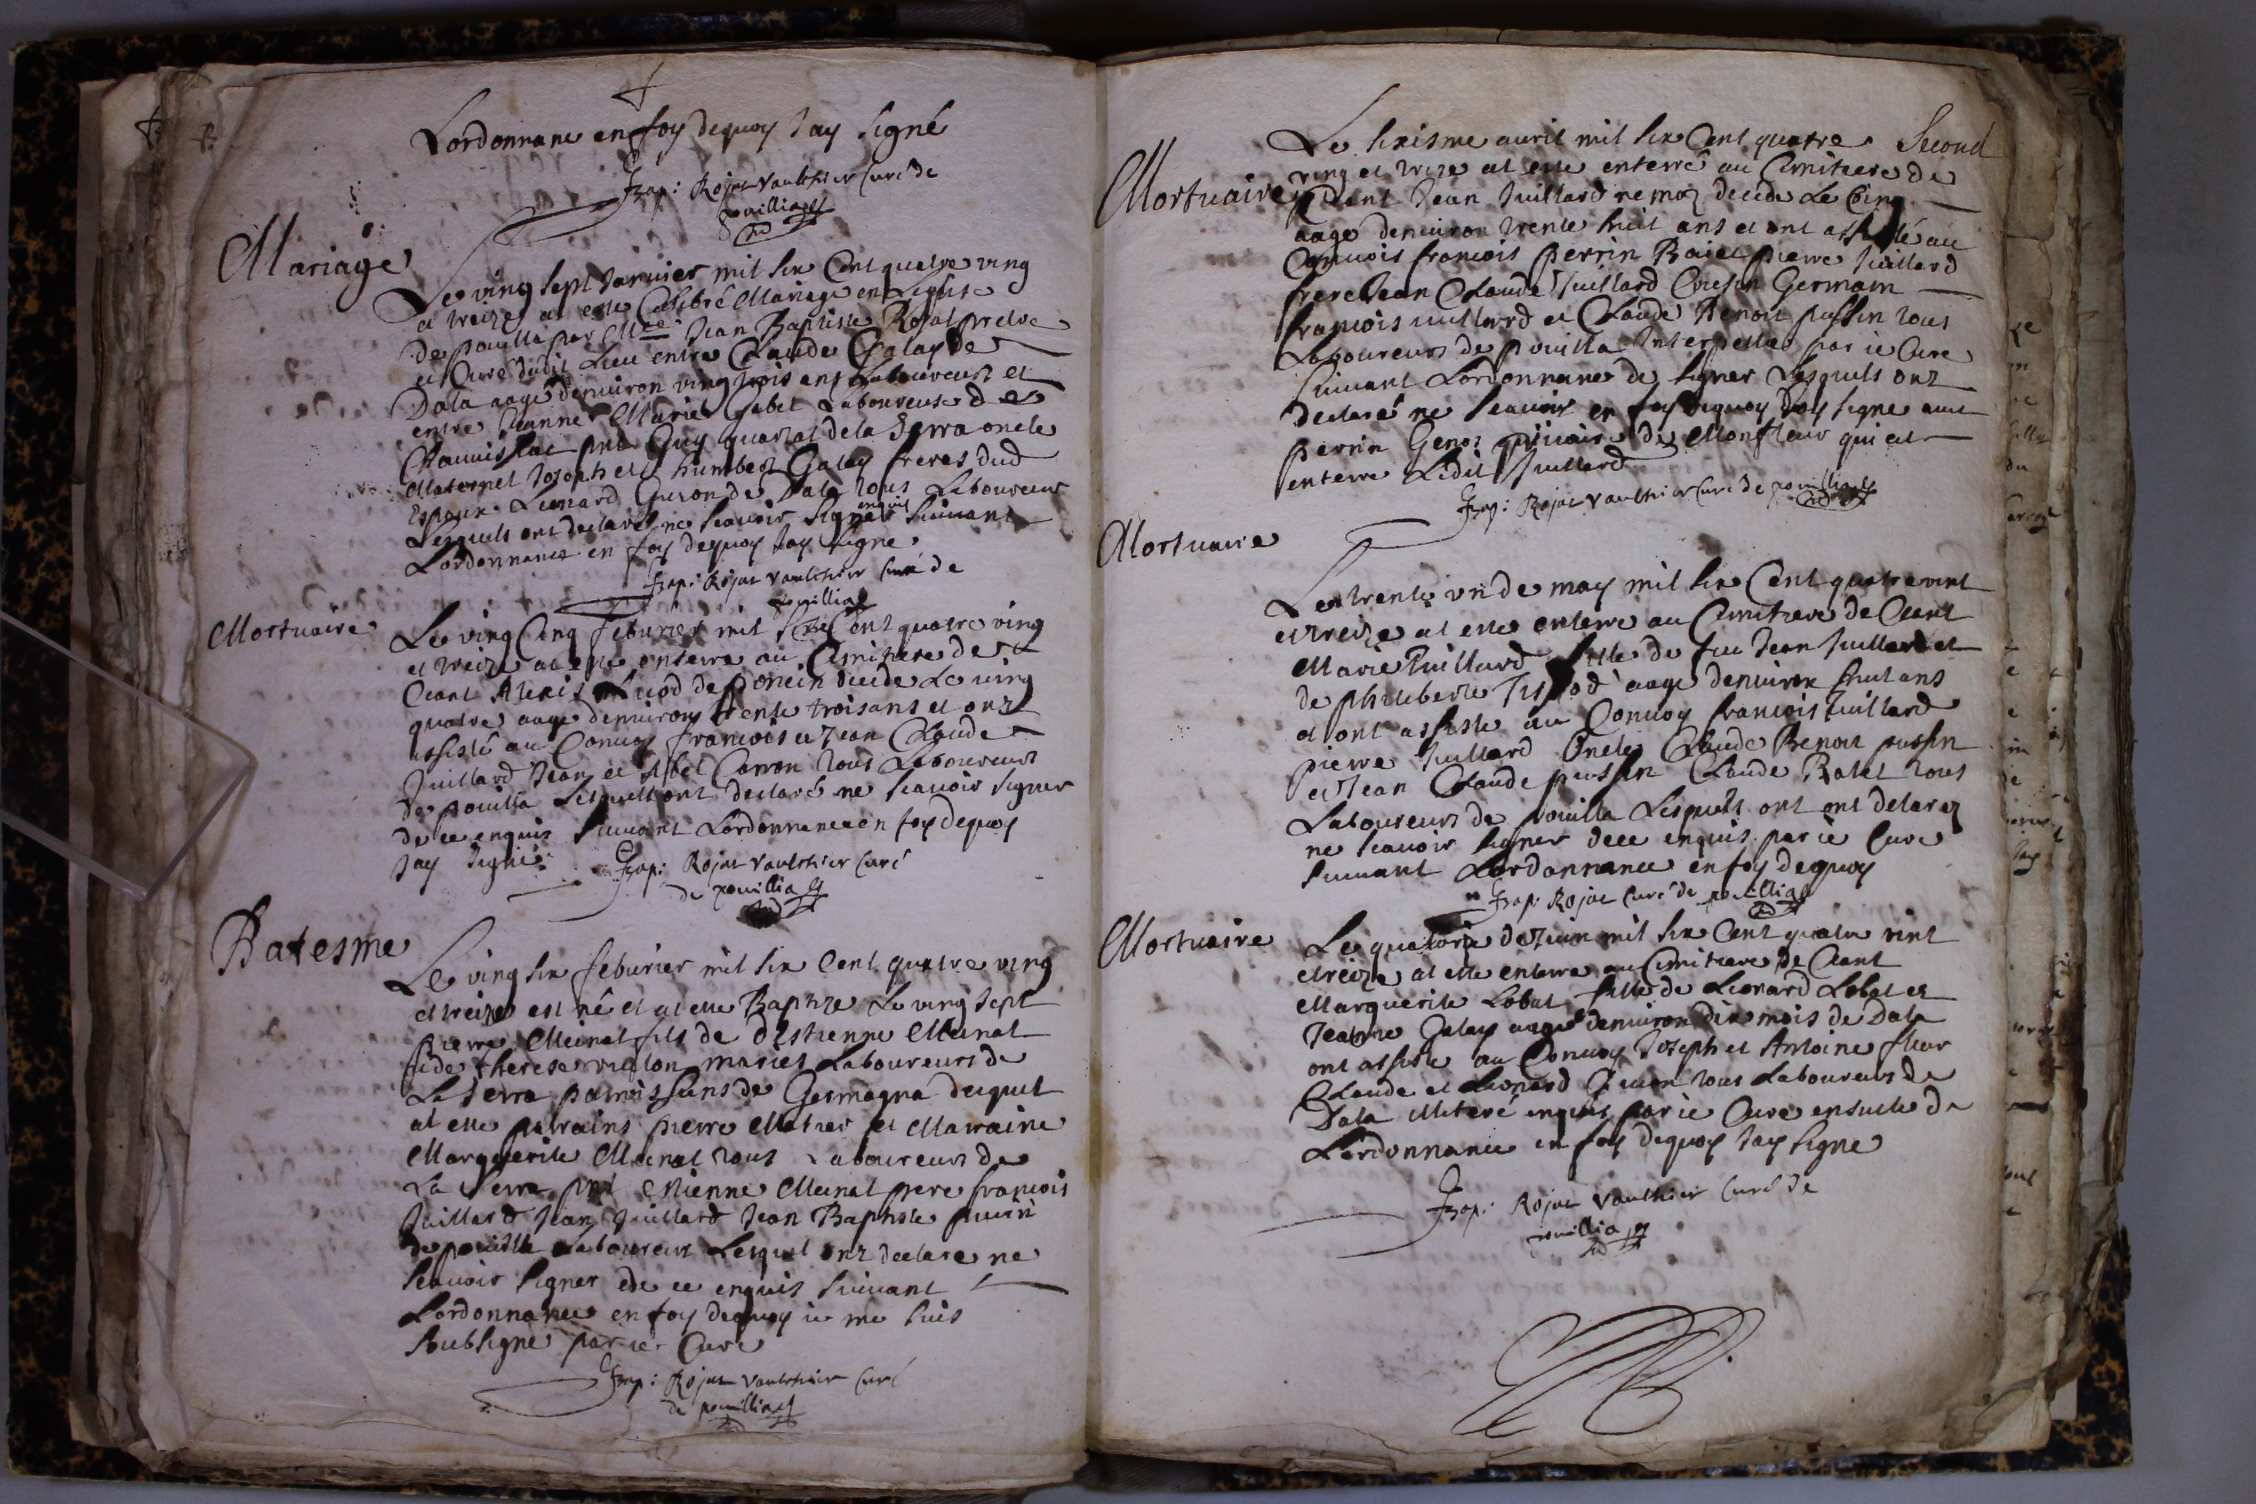 Lordonnance en foy dequoy Jay signé
Jbap: Rojat Vaulthier Curé de
pouilliat
Mariage
Le ving sept Janvier mil six Cent quatre ving
et treize at este Celebré Mariage en Leglise
de pouilla par Mre Jean Baptiste Rojat pretre
et Curé dudit Lieu entre Claude Galay de
Dala aagé denuiron ving trois ans Laboureur et
entre Jeanne Marie Gabet Laboureuse de
pnt Guy quartat de la Serra oncle
Maternel Joseph et humbert Galay freres dud
Espoux Lionard Guion de Dala tous Laboureur
Lesquels ont declaré ne scauoir signer enquis suiuant
Lordonnance en foy dequoy Jay signe
Jbap: Rojat Vaulthier Curé de
pouilliat
Mortuaire
Le ving Cinq feburier mil six Cent quatre ving
et treize at este enterre au Cimitiere de
Ciant Alexis de poncin decede Le ving
quatre aage denuiron trente trois ans et ont
assisté au Conuoy francois et Jean Claude
Juillard Jean et Abel Carron tous Laboureurs
de pouilla Lesquell ont declaré ne scauoir signer
de ce enquis suiuant Lordonnance en foy dequoy
Jay signé
Jbap: Rojat Vaulthier Curé
de pouilliat
Batesme
Le ving six feburier mil six Cent quatre ving
et treize est né et at este Baptize Le ving sept
pierre Meinat fils de destienne Meinat
et de therese vialon mariez Laboureurs de
La Serra paroissiens de Germagna duquel
at este parrains pierre Matier et Marraine
Marguerite Meinat tous Laboureurs de
La Serra pnt Etienne Meinat pere francois
Juillard Jean Juillard Jean Baptiste
de pouilla Laboureur Lesquel ont declare ne
scauoir signer ede ce enquis suiuant
Lordonnance en foy dequoy ie me suis
soubsigné par ie Curé
Jbap: Rojat Vaulthier Curé
de pouilliat
Second
Mortuaire
Le sixisme auril mil six Cent quatre
ving et treze at este enterré au Cimitiere de
Ciant Jean Juillard decede Le Cinq
aage denuiron trente huit ans et ont assisté au
Conuois francois perrin pierre Juillard
frere Jean Claude Juillard Cousin Germain
francois iuillard et Claude Benoit pussin tous
Laboureurs de pouilla Interpellez par ie Cure
suiuant Lordonnance de signer Lesquels ont
declaré ne scauoir en foy dequoy Jay signe auec
perrin Genoz de Monfleur qui at
enterre Ledit Juillard
Jbap: Rojat Vaulthier Curé de pouilliat
Mortuaire
Le trente vn de may mil six Cent quatre vint
et treize at este enterre au Cimitiere de Ciant
Marie Juillard fille de feu Jean Juillard et
de philiberte aage denuiron huit ans
et ont assiste au Conuoy francois Juillard
pierre Juillard Oncles Claude Benoit pussin
et Jean Claude pussin Claude tous
Laboureurs de pouilla Lesquels ont ont delarez
ne scauoir signer dece enquis par ie Cure
suiuant Lordonnance en foy dequoy
Jbap: Rojat Curé de pouilliat
Mortuaire
Le quatorze de Juin mil six Cent quatre vint
et treize at este enterre au Cimitiere de Ciant
Marguerite Lobet fille de Lionard Lobet et
Jeanne Galay aagé denuiron dix mois de Dala
ont assiste au Conuoy Joseph et Antoine
Claude et Lionard Guion tous Laboureurs de
Dala illiteré enquis par ie Cure ensuite de
Lordonnance en foy dequoy Jay signe
Jbap: Rojat Vaulthier Curé de
pouilliat